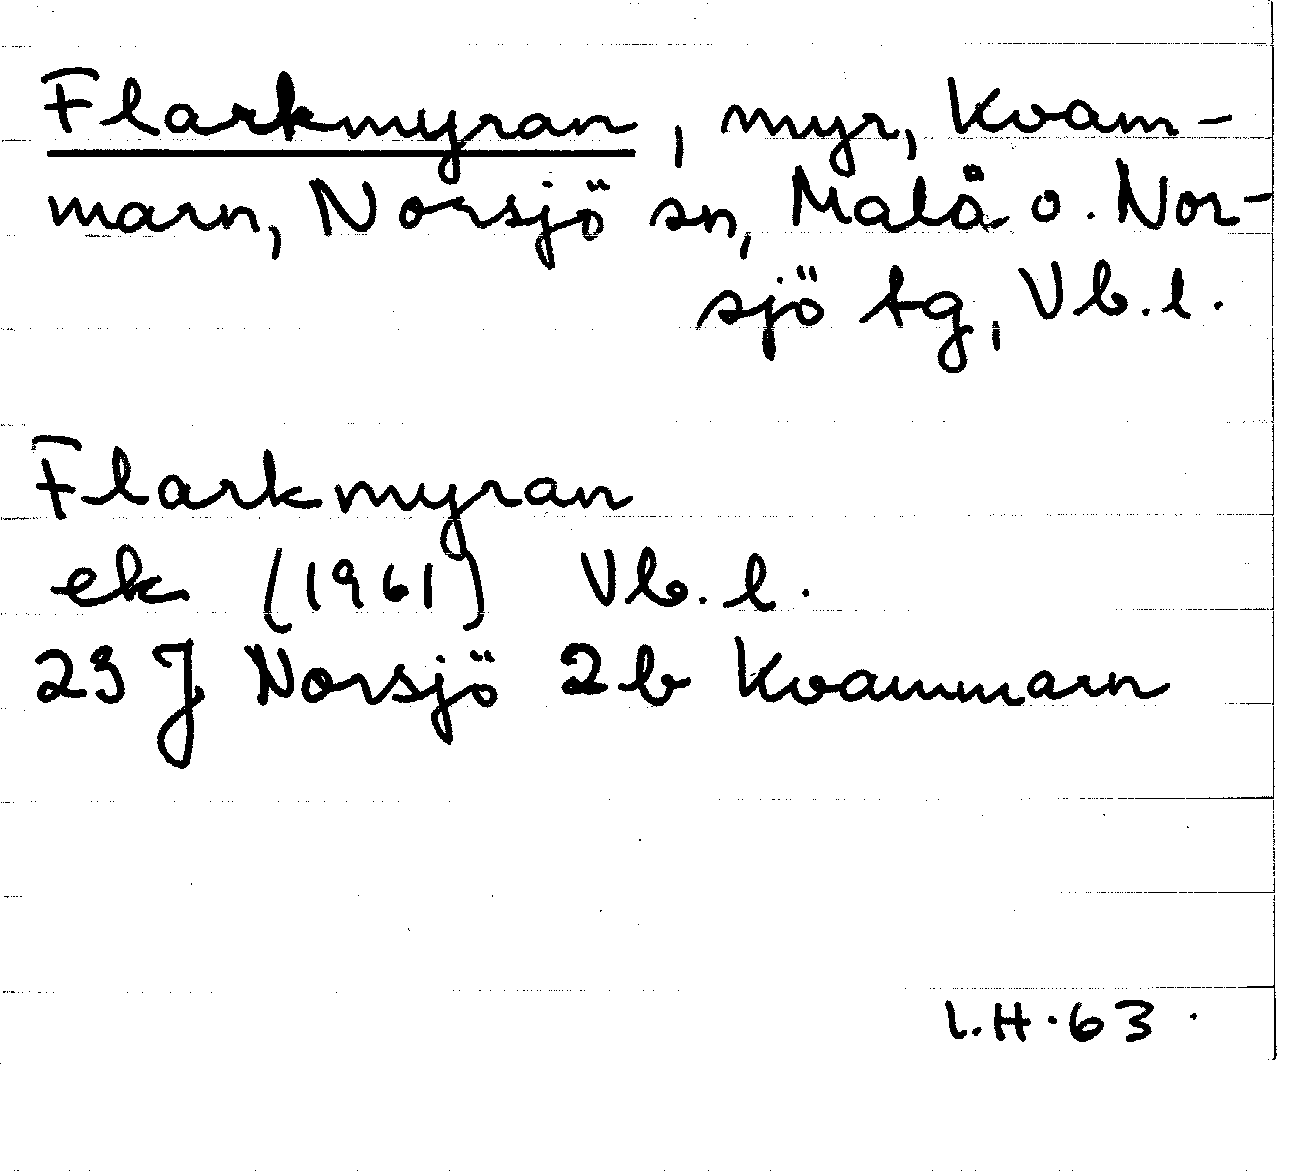 Flarkmyran, myr, Kvam-
marn, Norsjö sn, Malå o. Nor-
sjö tg, Vb.l.
Flarkmyran
ek (1961) Vb.l.
23 J Norsjö 2b Kvammarn
I.H.63.